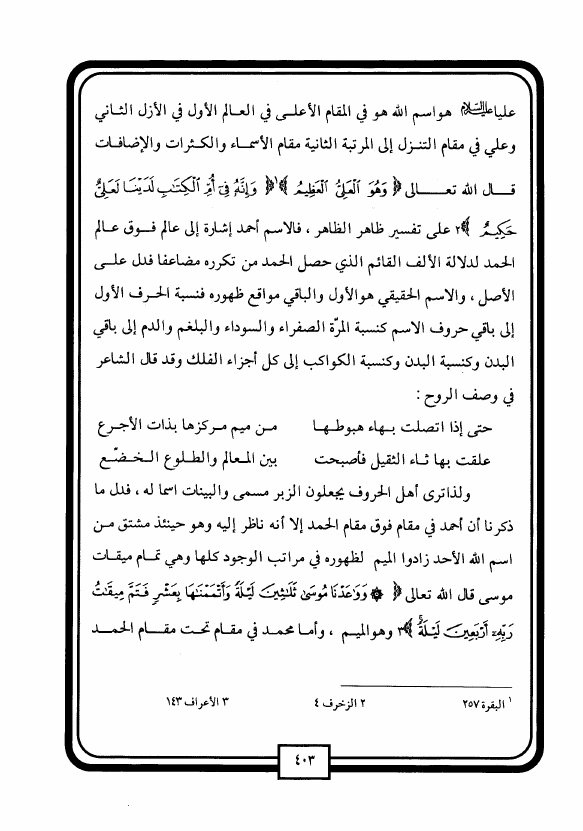 عليا عليه السلام هو اسم الله هو في المقام الأعلى في العالم الأول في الأزل الثاني
وعلي في مقام التنزل إلى المرتبة الثانية مقام الأسماء والكثرات والإضافات
قال الله تعالى ﴿ وَهُوَ ٱلْعَلِيُّ ٱلْعَظِيمُ ﴾١ ﴿ وَإِنَّهُۥ فِىٓ أُمِّ ٱلْكِتَٰبِ لَدَيْنَا لَعَلِىٌّ
حَكِيمٌ ﴾٢ على تفسير ظاهر الظاهر ، فالاسم أحمد إشارة إلى عالم فوق عالم
الحمد لدلالة الألف القائم الذي حصل الحمد من تكرره مضاعفا فدل على
الأصل ، والاسم الحقيقي هو الأول والباقي مواقع ظهوره فنسبة الحرف الأول
إلى باقي حروف الاسم كنسبة المرّة الصفراء والسوداء والبلغم والدم إلى باقي
البدن وكنسبة البدن وكنسبة الكواكب إلى كل أجزاء الفلك وقد قال الشاعر
في وصف الروح :
حتى إذا اتصلت بهاء هبوطها من ميم مركزها بذات الأجرع
علقت بها ثاء الثقيل فأصبحت بين المعالم والطلوع الخضّع
ولذا ترى أهل الحروف يجعلون الزبر مسمى والبينات اسما له ، فدل ما
ذكرنا أن أحمد في مقام فوق مقام الحمد إلا أنه ناظر إليه وهو حينئذ مشتق من
اسم الله الأحد زادوا الميم لظهوره في مراتب الوجود كلها وهي تمام ميقات
موسى قال الله تعالى ﴿ ۞ وَوَٰعَدْنَا مُوسَىٰ ثَلَٰثِينَ لَيْلَةً وَأَتْمَمْنَٰهَا بِعَشْرٍ فَتَمَّ مِيقَٰتُ
رَبِّهِۦٓ أَرْبَعِينَ لَيْلَةً ﴾٣ وهو الميم ، وأما محمد في مقام تحت مقام الحمد
١ البقرة ٢٥٧ ٢ الزخرف ٤ ٣ الأعراف ١٤٣
٤٠٣